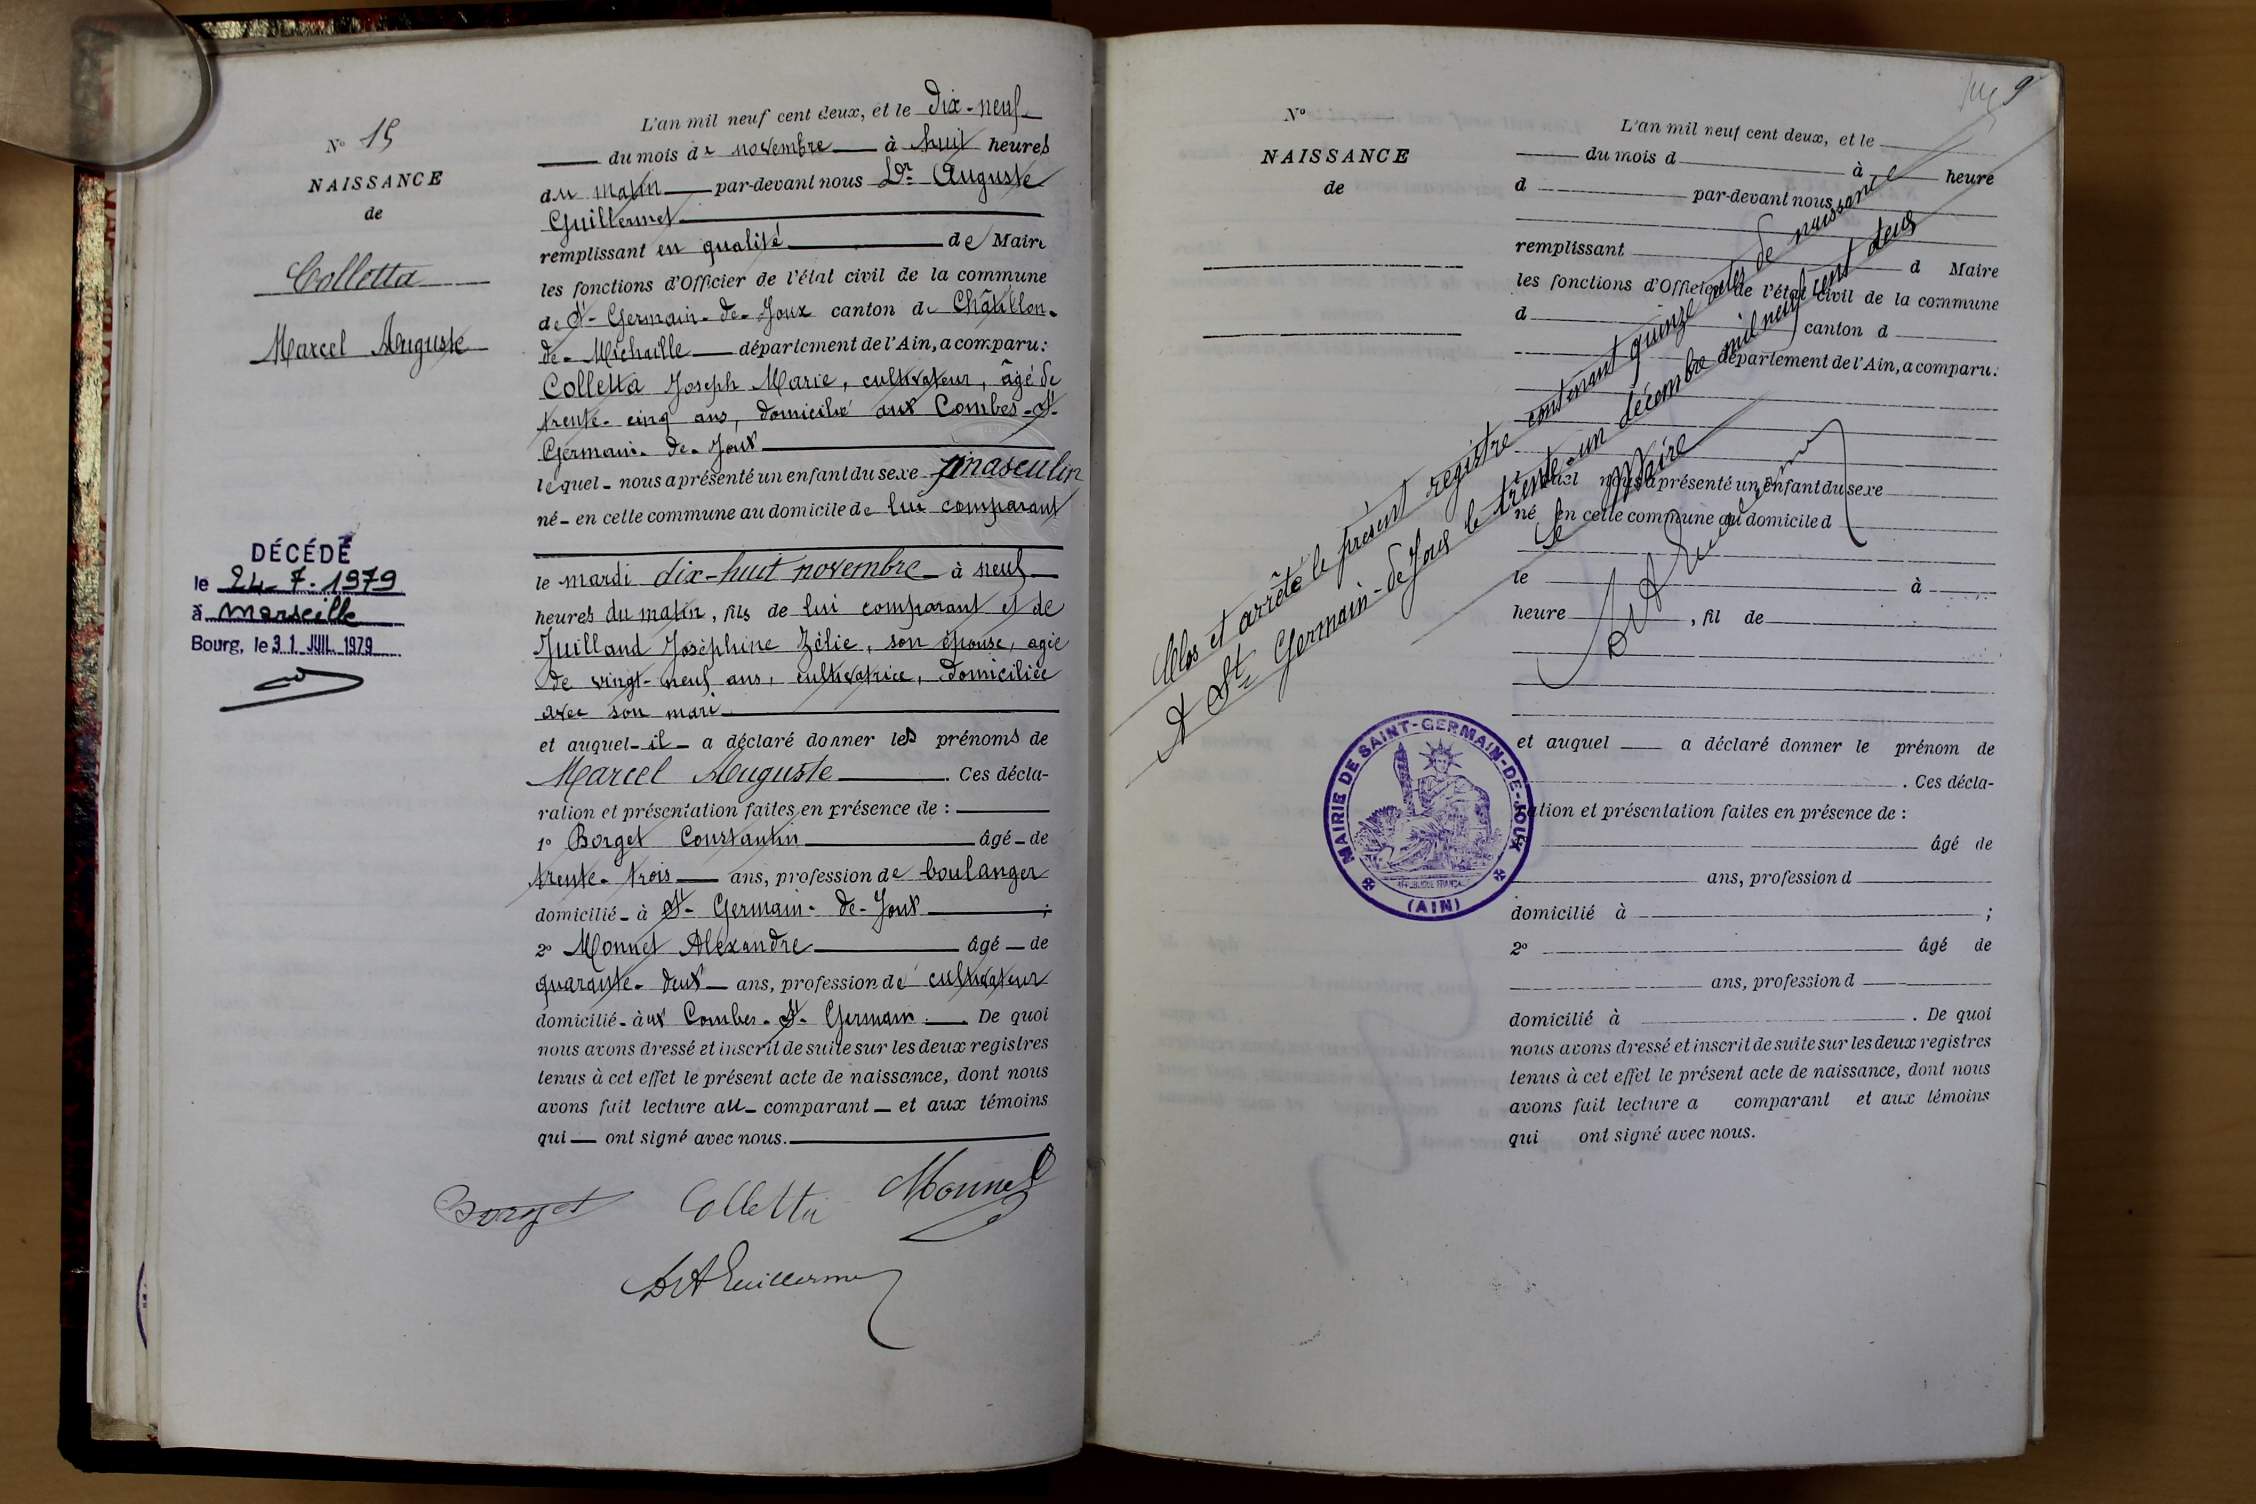 N° 15
NAISSANCE
de
Colletta
Marcel Auguste
DÉCÉDÉ
le 24-7-1979
à Marseille
Bourg, le 31 JUIL. 1979
L'an mil neuf cent deux, et le dix-neuf
du mois de novembre à huit heures
du matin par-devant nous Dr Auguste
Guillermet
remplissant en qualité de Maire
les fonctions d'Officier de l'état civil de la commune
de St-Germain-de-Joux canton de Châtillon-
de-Michaille département de l'Ain, a comparu:
Colletta Joseph Marie, cultivateur, âgé de
trente-cinq ans, domicilié aux Combes-St-
Germain-de-Joux
lequel nous a présenté un enfant du sexe masculin
né en cette commune au domicile de lui comparant
le mardi dix-huit novembre à neuf
heures du matin, fils de lui comparant et de
Juilland Joséphine Zélie, son épouse, agée
de vingt-neuf ans, cultivatrice, domiciliée
avec son mari
et auquel il a déclaré donner les prénoms de
Marcel Auguste. Ces décla-
ration et présentation faites en présence de :
1° Borget Constantin âgé de
trente-trois ans, profession de boulanger
domicilié à St-Germain-de-Joux ;
2° Monnet Alexandre âgé de
quarante-deux ans, profession de cultivateur
domicilié aux Combes-St-Germain. De quoi
nous avons dressé et inscrit de suite sur les deux registres
tenus à cet effet le présent acte de naissance, dont nous
avons fait lecture au comparant et aux témoins
qui ont signé avec nous.
Borget Colletta Monnet
Dr A Guillermet
9
N°
NAISSANCE
de
L'an mil neuf cent deux, et le
du mois d à heure
d par-devant nous
remplissant d Maire
les fonctions d'Officier de l'état civil de la commune
d canton d
département de l'Ain, a comparu:
lequel nous a présenté un enfant du sexe
né en cette commune au domicile d
le à
heure , fil de
et auquel a déclaré donner le prénom de
. Ces décla-
ration et présentation faites en présence de :
âgé de
ans, profession d
domicilié à ;
2° âgé de
ans, profession d
domicilié à . De quoi
nous avons dressé et inscrit de suite sur les deux registres
tenus à cet effet le présent acte de naissance, dont nous
avons fait lecture a comparant et aux témoins
qui ont signé avec nous.
Clos et arrêté le présent registre contenant quinze actes de naissance
A St Germain-de-Joux le trente-un décembre mil neuf cent deux
Le Maire
Dr A Guillermet
MAIRIE DE SAINT-GERMAIN-DE-JOUX
RÉPUBLIQUE FRANÇAISE
(AIN)